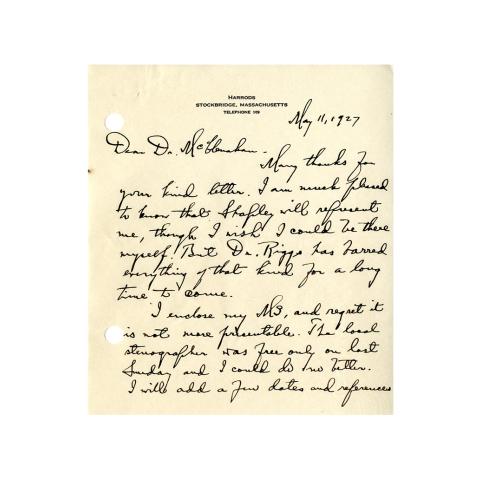 HARRODS
STOCKBRIDGE, MASSACHUSETTS
TELEPHONE 119
May 11, 1927
Dear Dr. McClenahan.
Many thanks for
your kind letter. I am much pleased
to know that Shapley will represent
me, though I wish I could be there
myself. But Dr. Riggs has barred
everything of that kind for a long
time to come.
I enclose my MS, and regret it
is not more presentable. The local
stenographer was free only on last
Sunday and I could do no better.
I will add a few dates and references